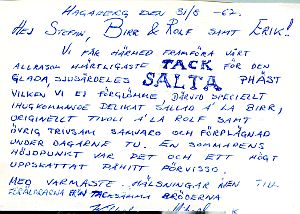 HAGABERG DEN 31/8 -62.
HEJ STEFAN, BIRR & ROLF SAMT ERIK!
VI FÅR HÄRMED FRAMFÖRA VÅRT
ALLRASOM HJÄRTLIGASTE TACK FÖR DEN
GLADA, SJUSÄRDELES SALTA PHÄST
VILKEN VI EJ FÖRGLÖMME DÄRVID SPECIELLT
IHUGKOMMANDE DELIKAT SALLAD A'LA BIRR,
ORIGINELLT TIVOLI A'LA ROLF SAMT
ÖVRIG TRIVSAM SAMVARO OCH FÖRPLÄGNAD
UNDER DAGARNE TU. EN SOMMARENS
HÖJDPUNKT VAR DET OCH ETT HÖGT
UPPSKATTAT PÅHITT FÖRVISSO.
MED VARMASTE HÄLSNINGAR ÄVEN TILL
FÖRÄLDRARNA FRÅN TACKSAMMA BRÖDERNA